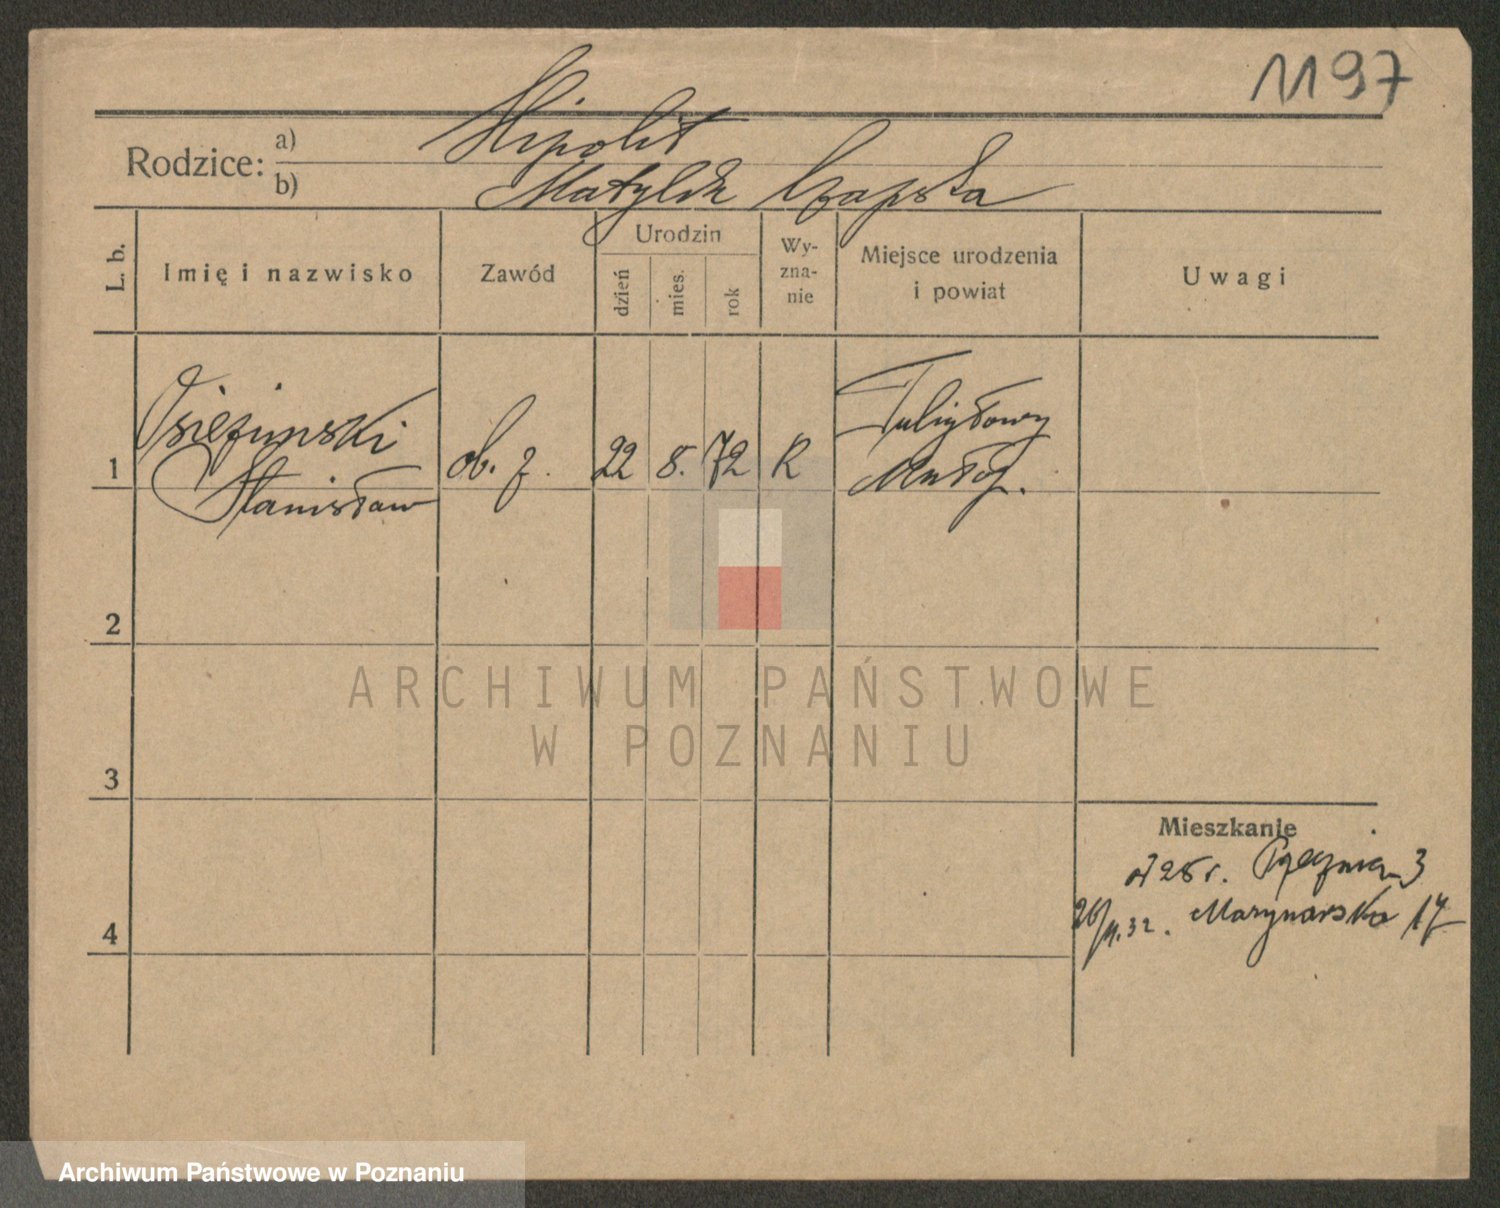 1197
Rodzice: a) Hipolit
b) Matylda Czapska
L. b.
Imię i nazwisko
Zawód
Urodzin
dzień
mies.
rok
Wy-
zna-
nie
Miejsce urodzenia
i powiat
Uwagi
1
Osieziński
Stanisław
ob. z.
22
8.
72
R
Tuligłowy
Małop.
2
3
4
Mieszkanie
od 25 r. 3
26/4.32. Marynarska 17
ARCHIWUM PAŃSTWOWE
W POZNANIU
Archiwum Państwowe w Poznaniu